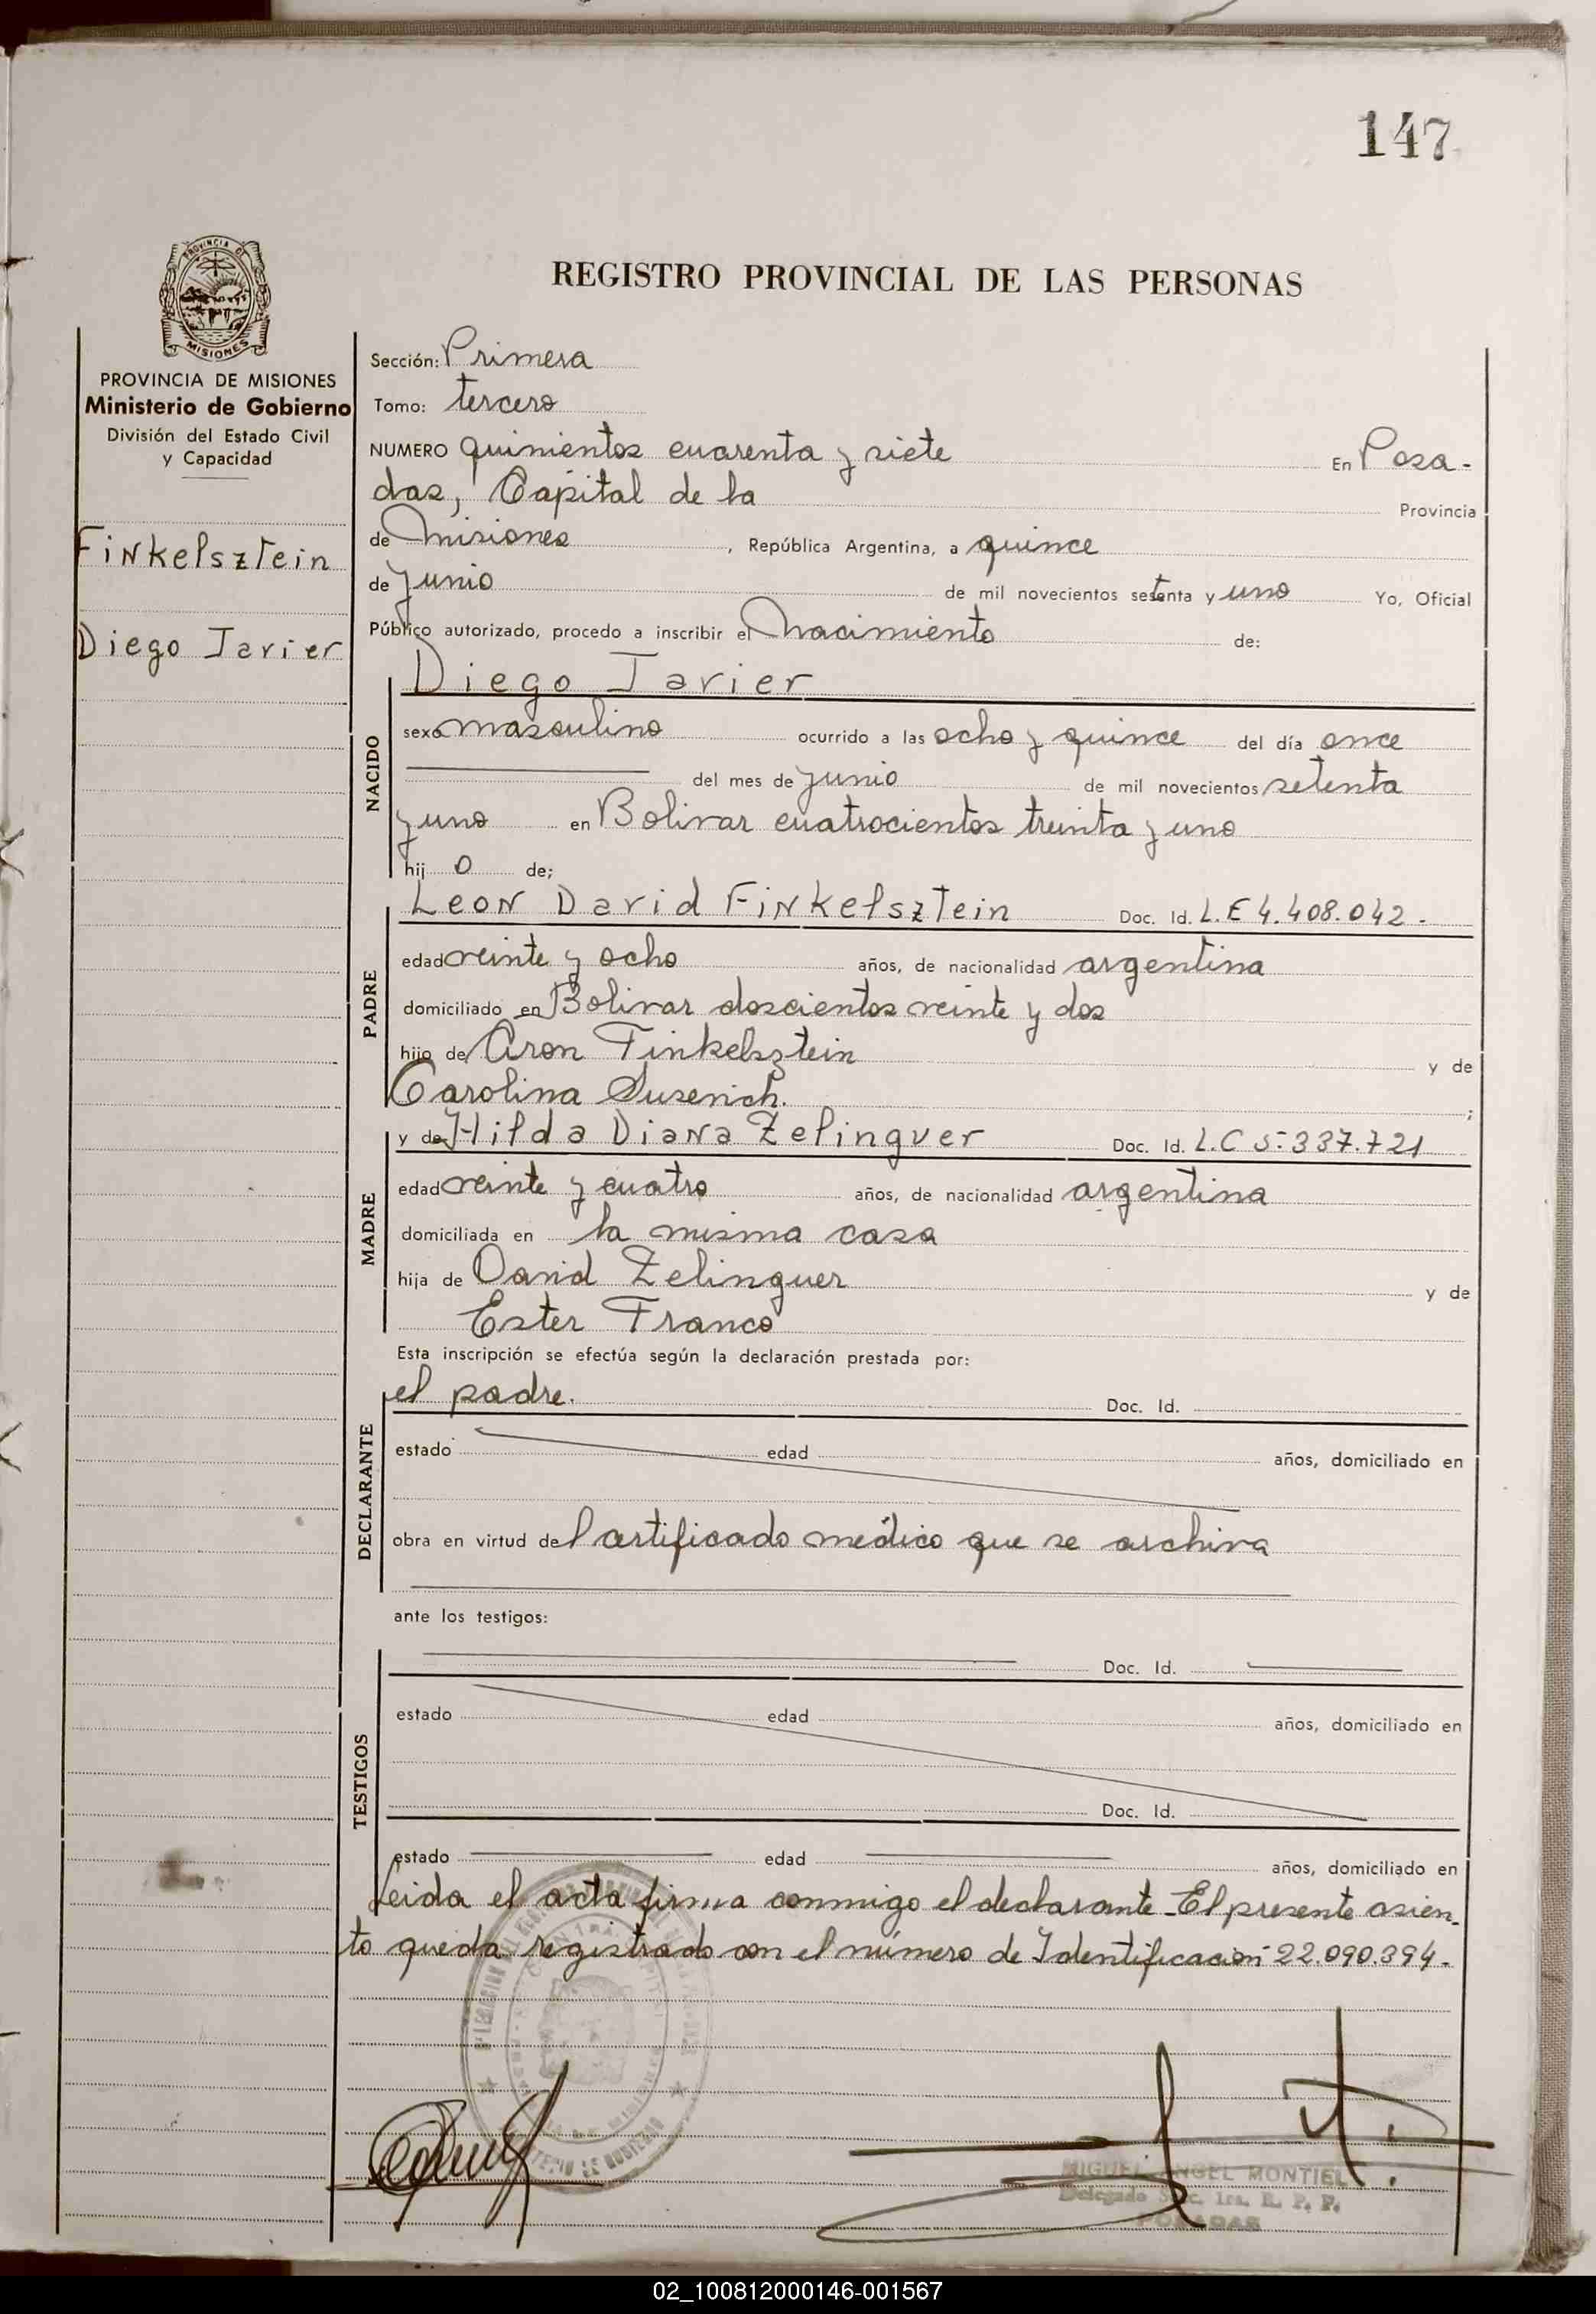 147
REGISTRO PROVINCIAL DE LAS PERSONAS
PROVINCIA DE
MISIONES
PROVINCIA DE MISIONES
Ministerio de Gobierno
División del Estado Civil
y Capacidad
Finkelsztein
Diego Javier
Sección: Primera
Tomo: tercero
NUMERO quinientos cuarenta y siete En Posa-
das, Capital de la Provincia
de Misiones, República Argentina, a quince
de Junio de mil novecientos setenta y uno Yo, Oficial
Público autorizado, procedo a inscribir el Nacimiento de:
Diego Javier
NACIDO
sexo masculino ocurrido a las ocho y quince del día once
del mes de Junio de mil novecientos setenta
y uno en Bolivar cuatrocientos treinta y uno
hijo de;
Leon David Finkelsztein Doc. Id. L.E 4.408.042.-
PADRE
edad veinte y ocho años, de nacionalidad argentina
domiciliado en Bolivar doscientos veinte y dos
hijo de Aron Finkelsztein y de
Carolina Susenich. ;
y de Hilda Diana Zelinguer Doc. Id. L.C 5.337.721
MADRE
edad veinte y cuatro años, de nacionalidad argentina
domiciliada en la misma casa
hija de David Zelinguer y de
Ester Franco
Esta inscripción se efectúa según la declaración prestada por:
el padre. Doc. Id.
DECLARANTE
estado edad años, domiciliado en
obra en virtud del certificado médico que se archiva
ante los testigos:
Doc. Id.
TESTIGOS
estado edad años, domiciliado en
Doc. Id.
estado edad años, domiciliado en
Leida el acta firma conmigo el declarante.-El presente asien-
to queda registrado con el número de Identificación 22.090.394.-
MIGUEL ANGEL MONTIEL
Delegado Sec. 1ra. R. P. P.
POSADAS
02_100812000146-001567